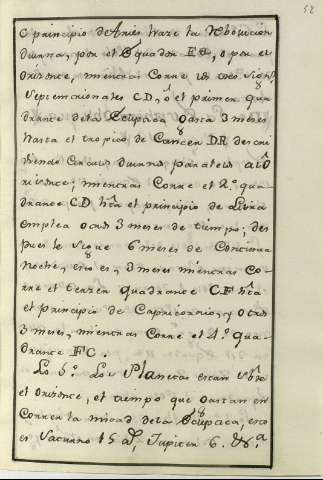 52
C principio de Aries haze la Revolucion
diurna, por el Equador FC, o por el
Orizonte, mientras Corre los seis sign.s
Septentrionales CD, o el primer qua
drante de la Ecliptica Gasta 3 meses
hasta el tropico de Cancer DR descri
viendo Circulos diurnos paralelos al O
rizonte; mientras Corre el 2.º qua
drante CD hta el principio de Libra
emplea otros 3 meses de tiempo; des
pues se sigue 6 meses de Continua
Noche, esto es, 3 meses mientras Co
rre el tercer quadrante CF hta
el principio de Capricornio, y otros
3 meses, mientras Corre el 4.º qua
drante FC.
Lo 5.º Los Planetas estan sobre
el Orizonte, el tiempo que Gastan en
Correr la mitad de la Ecliptica, esto
es Saturno 15 a.s, Jupiter 6. &.a